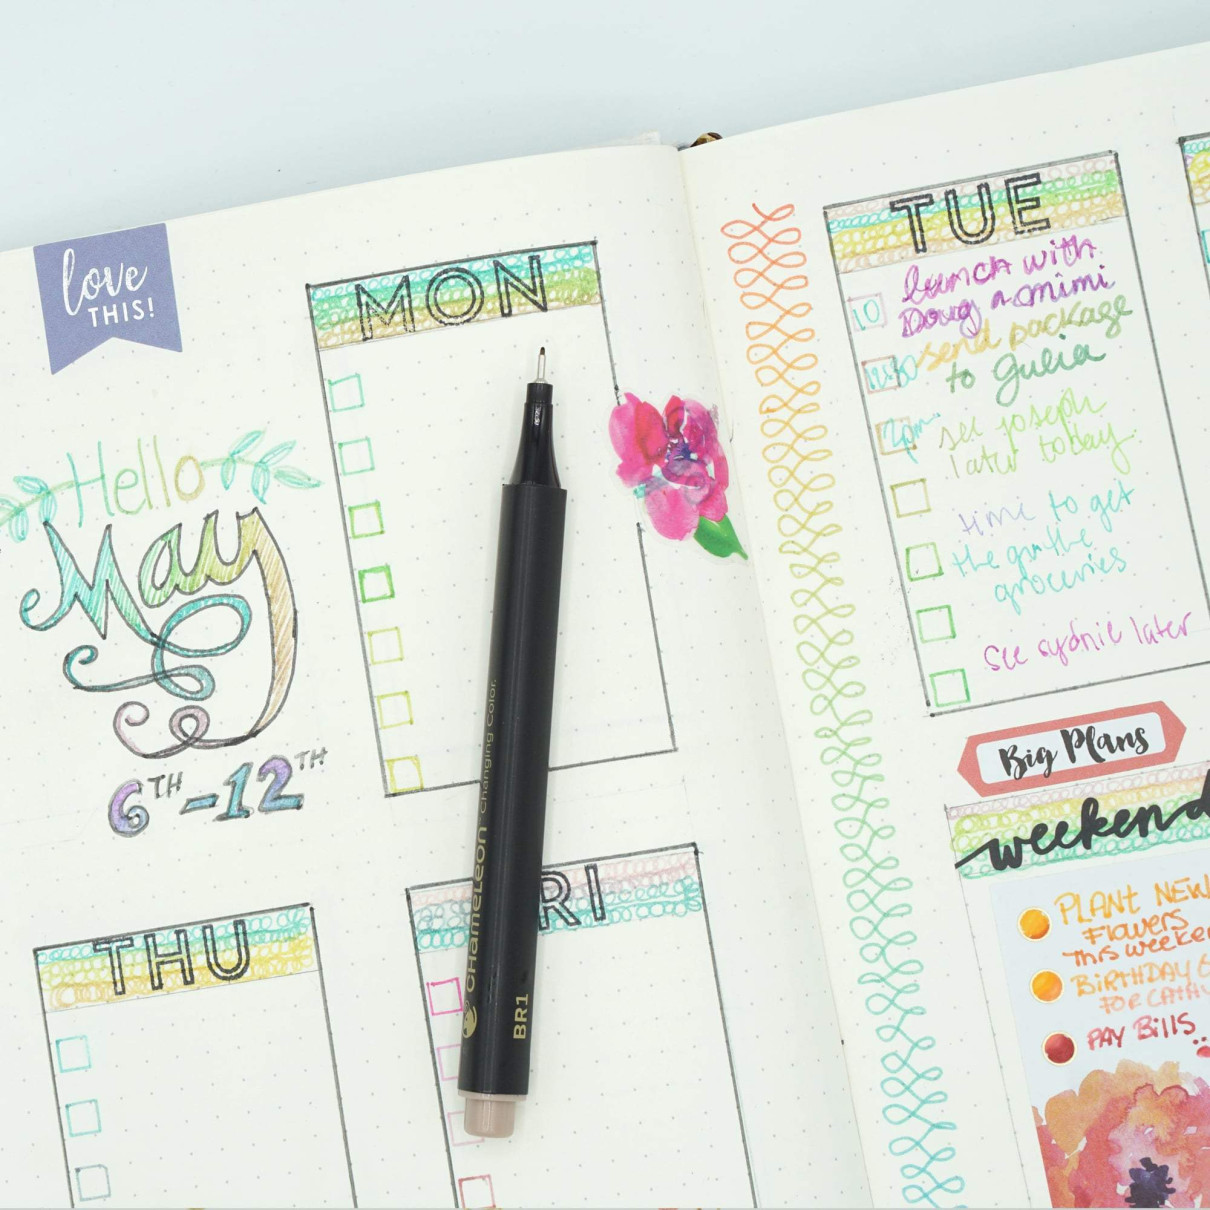 love
THIS!
Hello
May
6TH-12TH
MON
THU
RI
CHameLeon Changing Color.
BR1
TUE
10
lunch with
Doug n mimi
send package
to Gulia
2pm
see joseph
later today
time to get
the
groceries
see sydnie later
Big Plans
weekend
PLANT NEW
Flowers
THis weeken
BiRTHDAY
FOR
PAY Bills